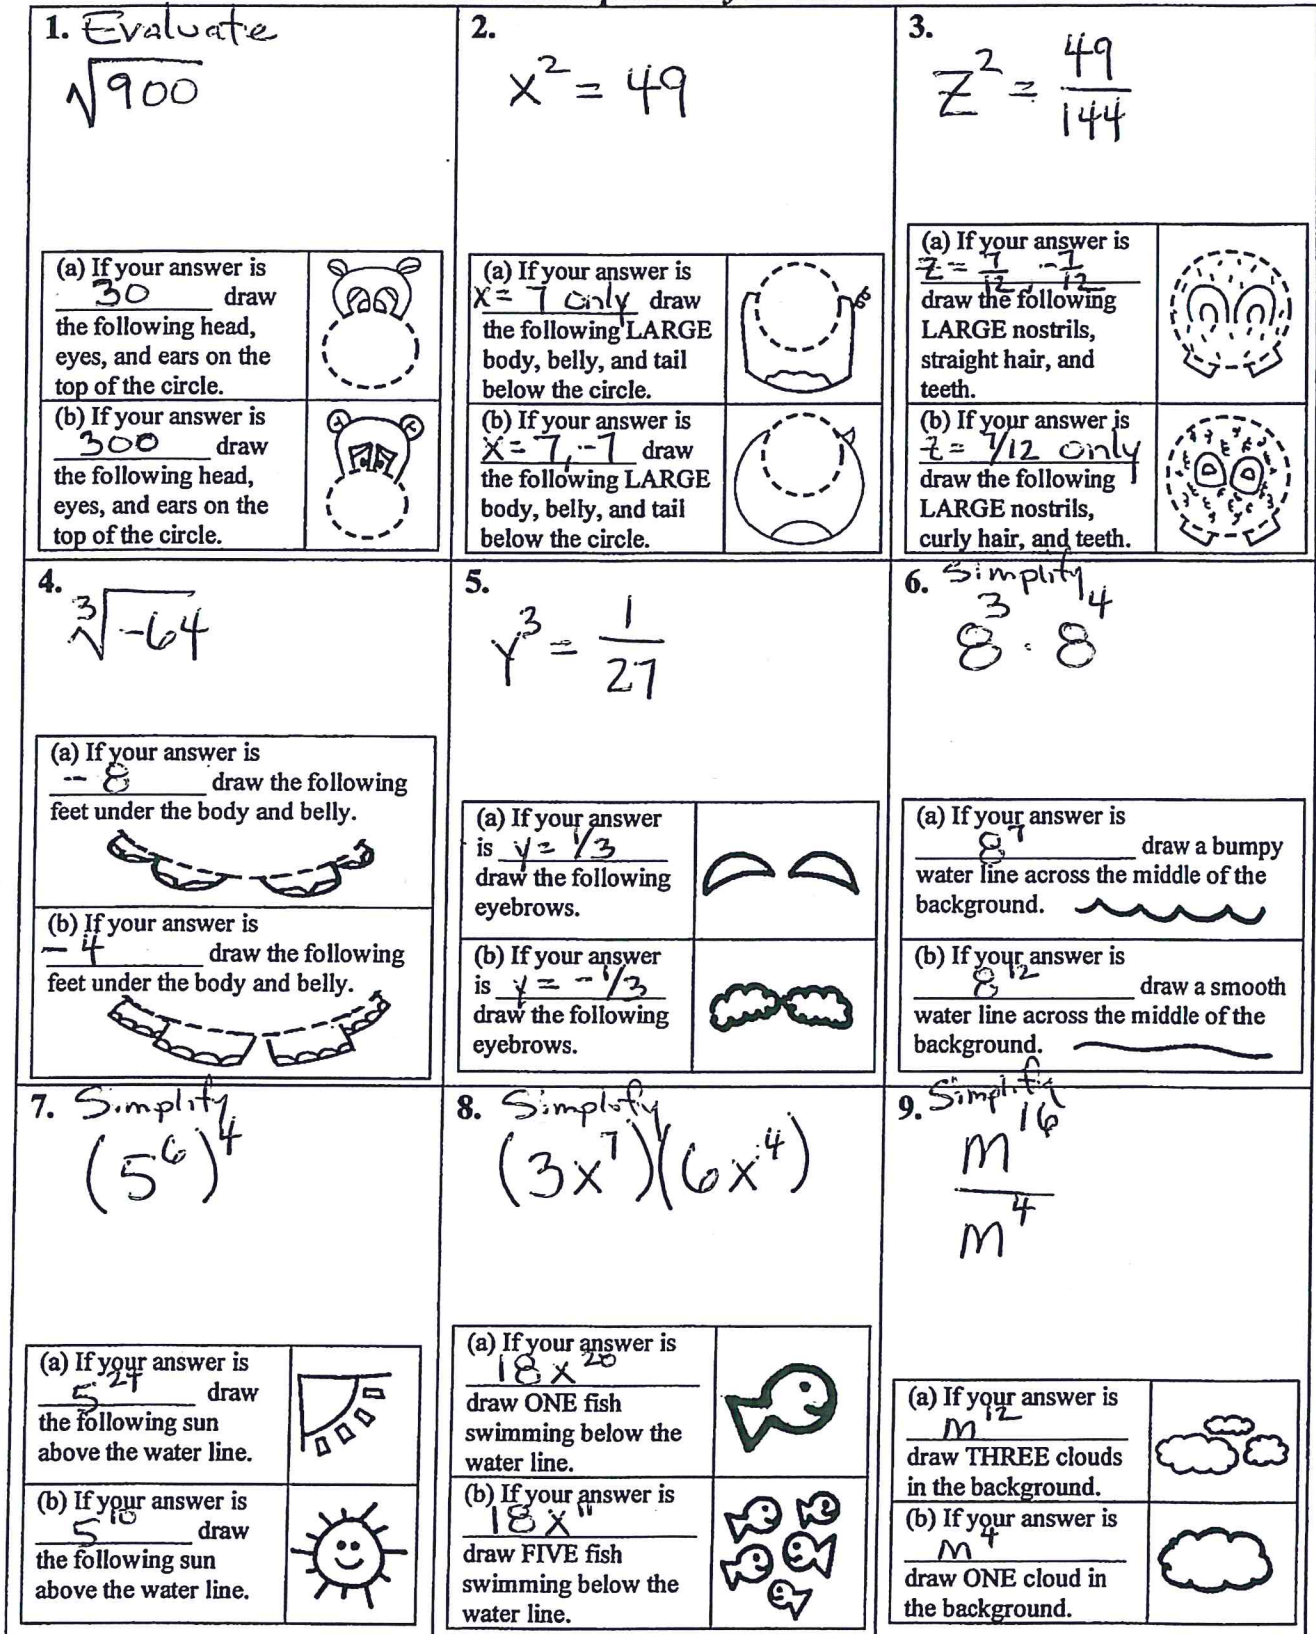 1. Evaluate
√900
(a) If your answer is
30 draw
the following head,
eyes, and ears on the
top of the circle.
(b) If your answer is
300 draw
the following head,
eyes, and ears on the
top of the circle.
2.
x² = 49
(a) If your answer is
x = 7 only draw
the following LARGE
body, belly, and tail
below the circle.
(b) If your answer is
x = 7, -7 draw
the following LARGE
body, belly, and tail
below the circle.
3.
z² = 49/144
(a) If your answer is
z = 7/12, -7/12
draw the following
LARGE nostrils,
straight hair, and
teeth.
(b) If your answer is
z = 7/12 only
draw the following
LARGE nostrils,
curly hair, and teeth.
4.
∛-64
(a) If your answer is
-8 draw the following
feet under the body and belly.
(b) If your answer is
-4 draw the following
feet under the body and belly.
5.
y³ = 1/27
(a) If your answer
is y = 1/3
draw the following
eyebrows.
(b) If your answer
is y = -1/3
draw the following
eyebrows.
6. Simplify
8³ · 8⁴
(a) If your answer is
8⁷ draw a bumpy
water line across the middle of the
background.
(b) If your answer is
8¹² draw a smooth
water line across the middle of the
background.
7. Simplify
(5⁶)⁴
(a) If your answer is
5²⁴ draw
the following sun
above the water line.
(b) If your answer is
5¹⁰ draw
the following sun
above the water line.
8. Simplify
(3x⁷)(6x⁴)
(a) If your answer is
18x²⁰
draw ONE fish
swimming below the
water line.
(b) If your answer is
18x¹¹
draw FIVE fish
swimming below the
water line.
9. Simplify
m¹⁶
m⁴
(a) If your answer is
m¹²
draw THREE clouds
in the background.
(b) If your answer is
m⁴
draw ONE cloud in
the background.